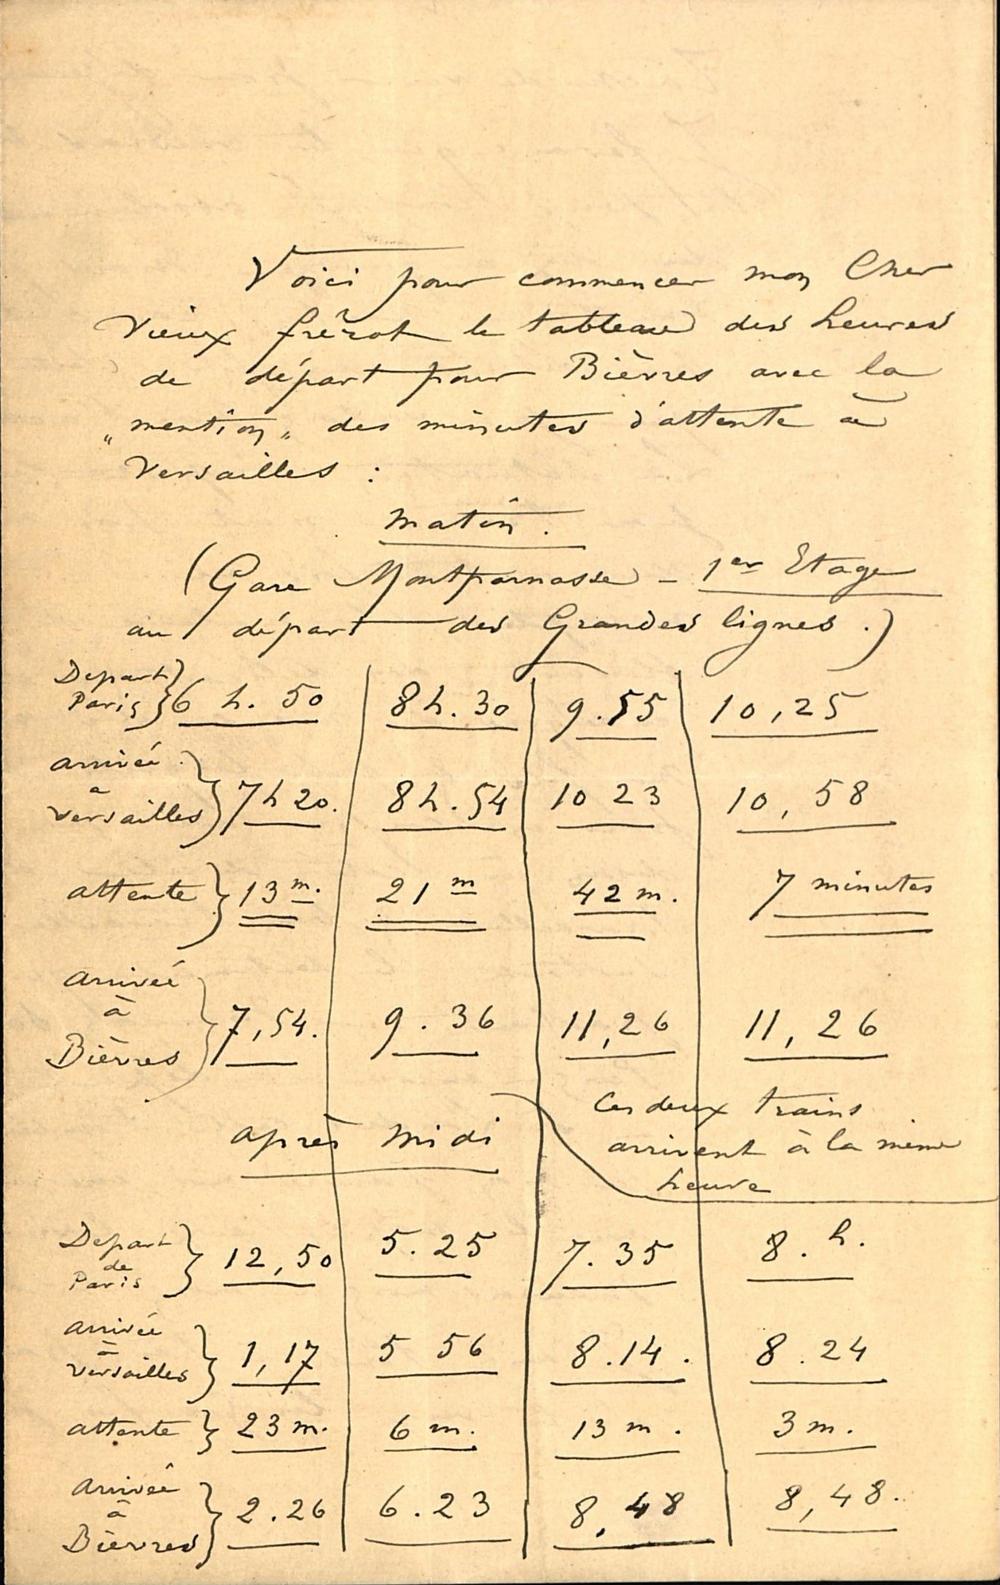 Voici pour commencer mon Cher
vieux frérot le tableau des heures
de départ pour Bièvres avec la
„mention„ des minutes d'attente à
Versailles :
Matin.
(Gare Montparnasse – 1er Etage
au départ des Grandes lignes.)
Depart Paris } 6 h. 50 | 8h. 30 | 9.55 | 10,25
arrivée à Versailles } 7h20. | 8h.54 | 10 23 | 10,58
attente } 13 m. | 21 m | 42 m. | 7 minutes
arrivée à Bièvres } 7,54. | 9.36 | 11,26 | 11,26
Ces deux trains
arrivent à la même
heure
après Midi
Depart de Paris } 12,50 | 5.25 | 7.35 | 8.h.
arrivée à Versailles } 1,17 | 5 56 | 8.14. | 8.24
attente } 23 m. | 6 m. | 13 m. | 3 m.
arrivée à Bièvres } 2.26 | 6.23 | 8,48 | 8,48.